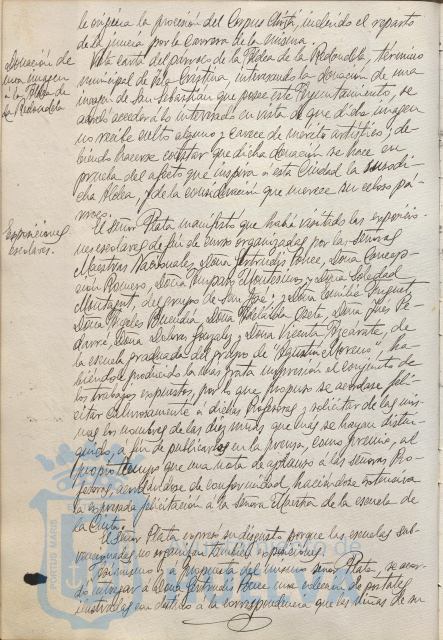 le exigiera la procesión del Corpus Christi, incluido el reparto
de la juncia por la carrera de la misma.
Donación de
una imagen
á la Aldea de
la Redondela
Vista carta del párroco de la Aldea de la Redondela, término
municipal de Isla Cristina interesando la donación de una
imagen de San Sebastián que posee este Ayuntamiento, se
acordó acceder á lo interesado en vista de que dicha imagen
no recibe culto alguno y carece de mérito artístico, de-
biendo hacerse constar que dicha donación se hace en
prueba del afecto que inspira á esta Ciudad la susodi-
cha Aldea, y de la consideración que merece su celoso pá-
rroco.
Exposiciones
escolares.
El Señor Plata manifestó que había visitado las exposicio-
nes escolares de fin de curso organizadas por las Señoras
Maestras Nacionales, Doña Gertrudis Ponce, Doña Concep-
ción Romero, Doña Amparo Montesinos y Doña Soledad
del grupo de San José; y Doña Emilia
Doña Angeles Buendía, Doña Adelaida Doña Inés
Doña Dolores González y Doña Vicenta de
la escuela graduada del grupo de "Agustín Moreno", ha-
biéndole producido la más grata impresión el conjunto de
los trabajos expuestos, por lo que propuso se acordase feli-
citar calurosamente á dichas Profesoras y solicitar de las mis-
mas los nombres de las diez niñas que más se hayan distin-
guido, á fin de publicarlos en la prensa, como premio, al
propio tiempo que una nota de aplauso á las señoras Pro-
fesoras, acordándose de conformidad, haciéndose extensiva
la expresada felicitación á la señora Maestra de la escuela de
la Cinta.
El Señor Plata expresó su disgusto porque las escuelas sub-
vencionadas no organizan también exposiciones.
Asimismo y á propuesta del mismo señor Plata, se acor-
dó entregar á Doña Gertrudis Ponce una colección de postales
ilustradas con destino á la correspondencia que las niñas de su